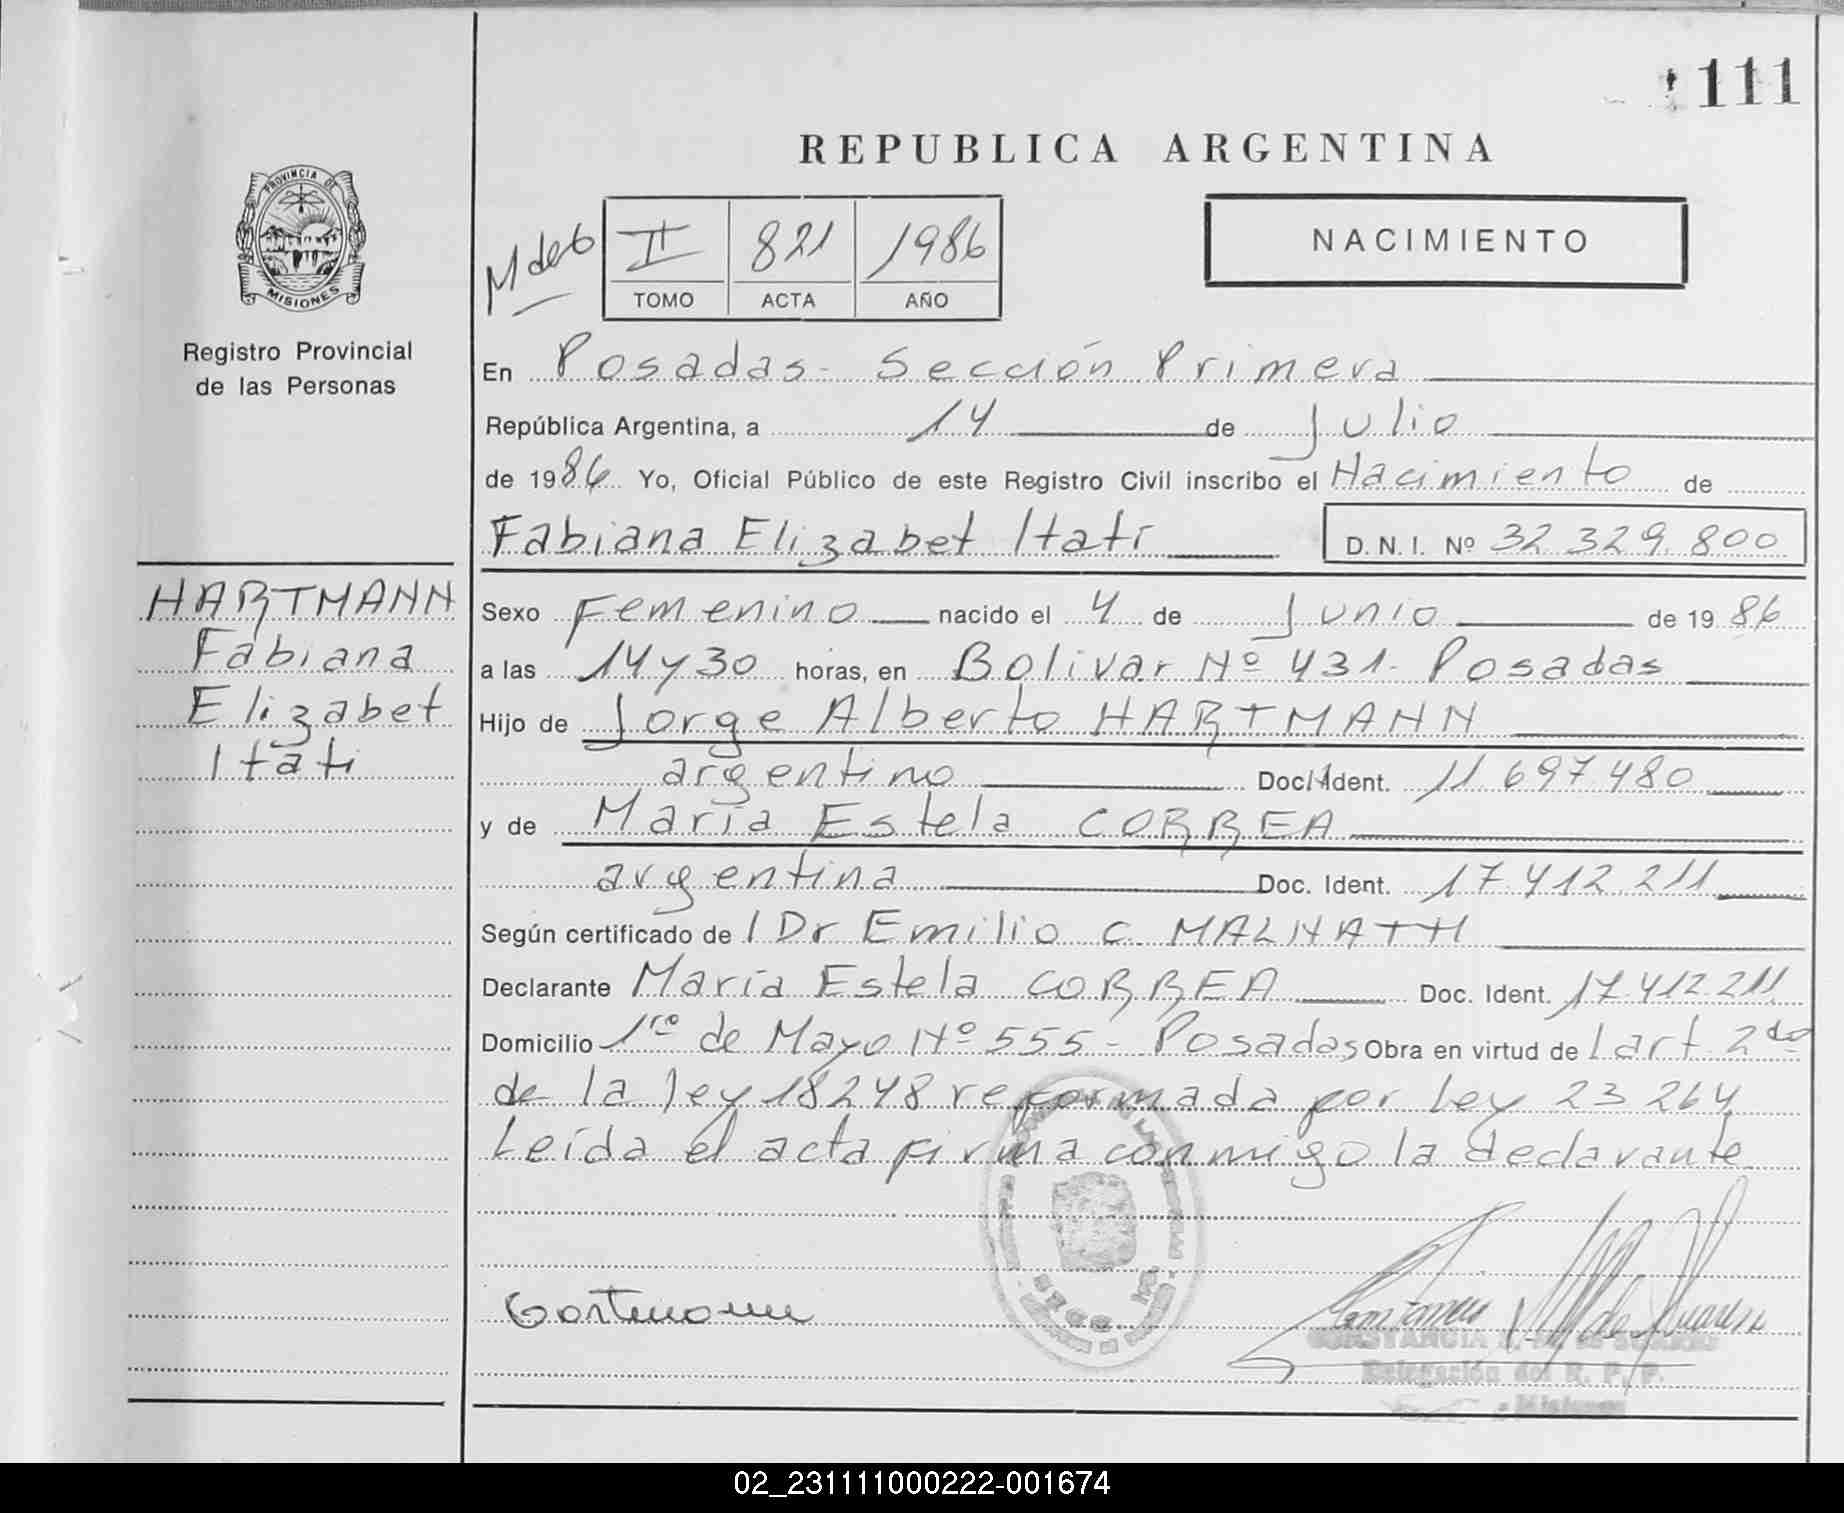 111
REPUBLICA ARGENTINA
PROVINCIA DE
MISIONES
II 821 1986
TOMO ACTA AÑO
NACIMIENTO
Registro Provincial
de las Personas
En Posadas - Sección Primera
República Argentina, a 14 de Julio
de 1986 Yo, Oficial Público de este Registro Civil inscribo el Nacimiento de
Fabiana Elizabet Itatí D.N.I. Nº 32 329.800
HARTMANN
Fabiana
Elizabet
Itatí
Sexo Femenino nacido el 4 de Junio de 1986
a las 14 y 30 horas, en Bolivar Nº 431- Posadas
Hijo de Jorge Alberto HARTMANN
argentino Doc. Ident. 11 697 480
y de María Estela CORREA
argentina Doc. Ident. 17.412 211
Según certificado de l Dr Emilio C.
Declarante María Estela CORREA Doc. Ident. 17.412 211
Domicilio 1ro de Mayo Nº 555 - Posadas Obra en virtud de l art. 2do
de la ley 18248 reformada por Ley 23 264
Leída el acta firma conmigo la declarante
CONSTANCIA
Delegación del R. P. P.
Misiones
02_231111000222-001674